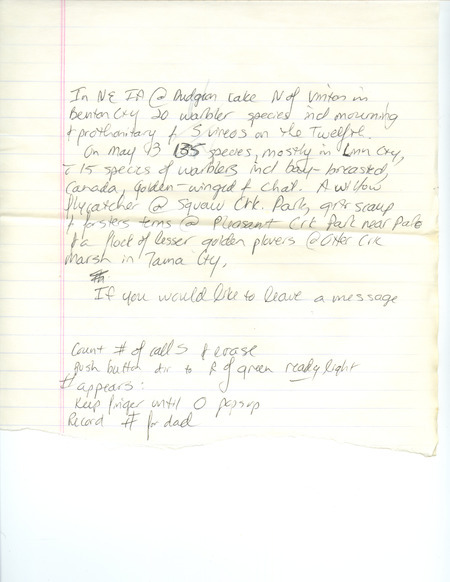 In NE IA @ Dudgeon Lake N of Vinton in
Benton Cty 20 warbler species incl mourning
& prothonitary & 5 vireos on the Twelfth.
On May 13 135 species, mostly in Linn Cty,
c 15 species of warblers incl bay-breasted,
Canada, Golden-winged & chat. A willow
flycatcher @ Squaw Crk. Park, gr8r scaup
& forsters terns @ Pleasant Crk Park near Palo
& a flock of lesser golden plovers @ Otter Crk
Marsh in Tama Cty.
If you would like to leave a message
Count # of calls & erase
push button dir to R of green ready light
# appears:
Keep finger until 0 pops up
Record # for dad